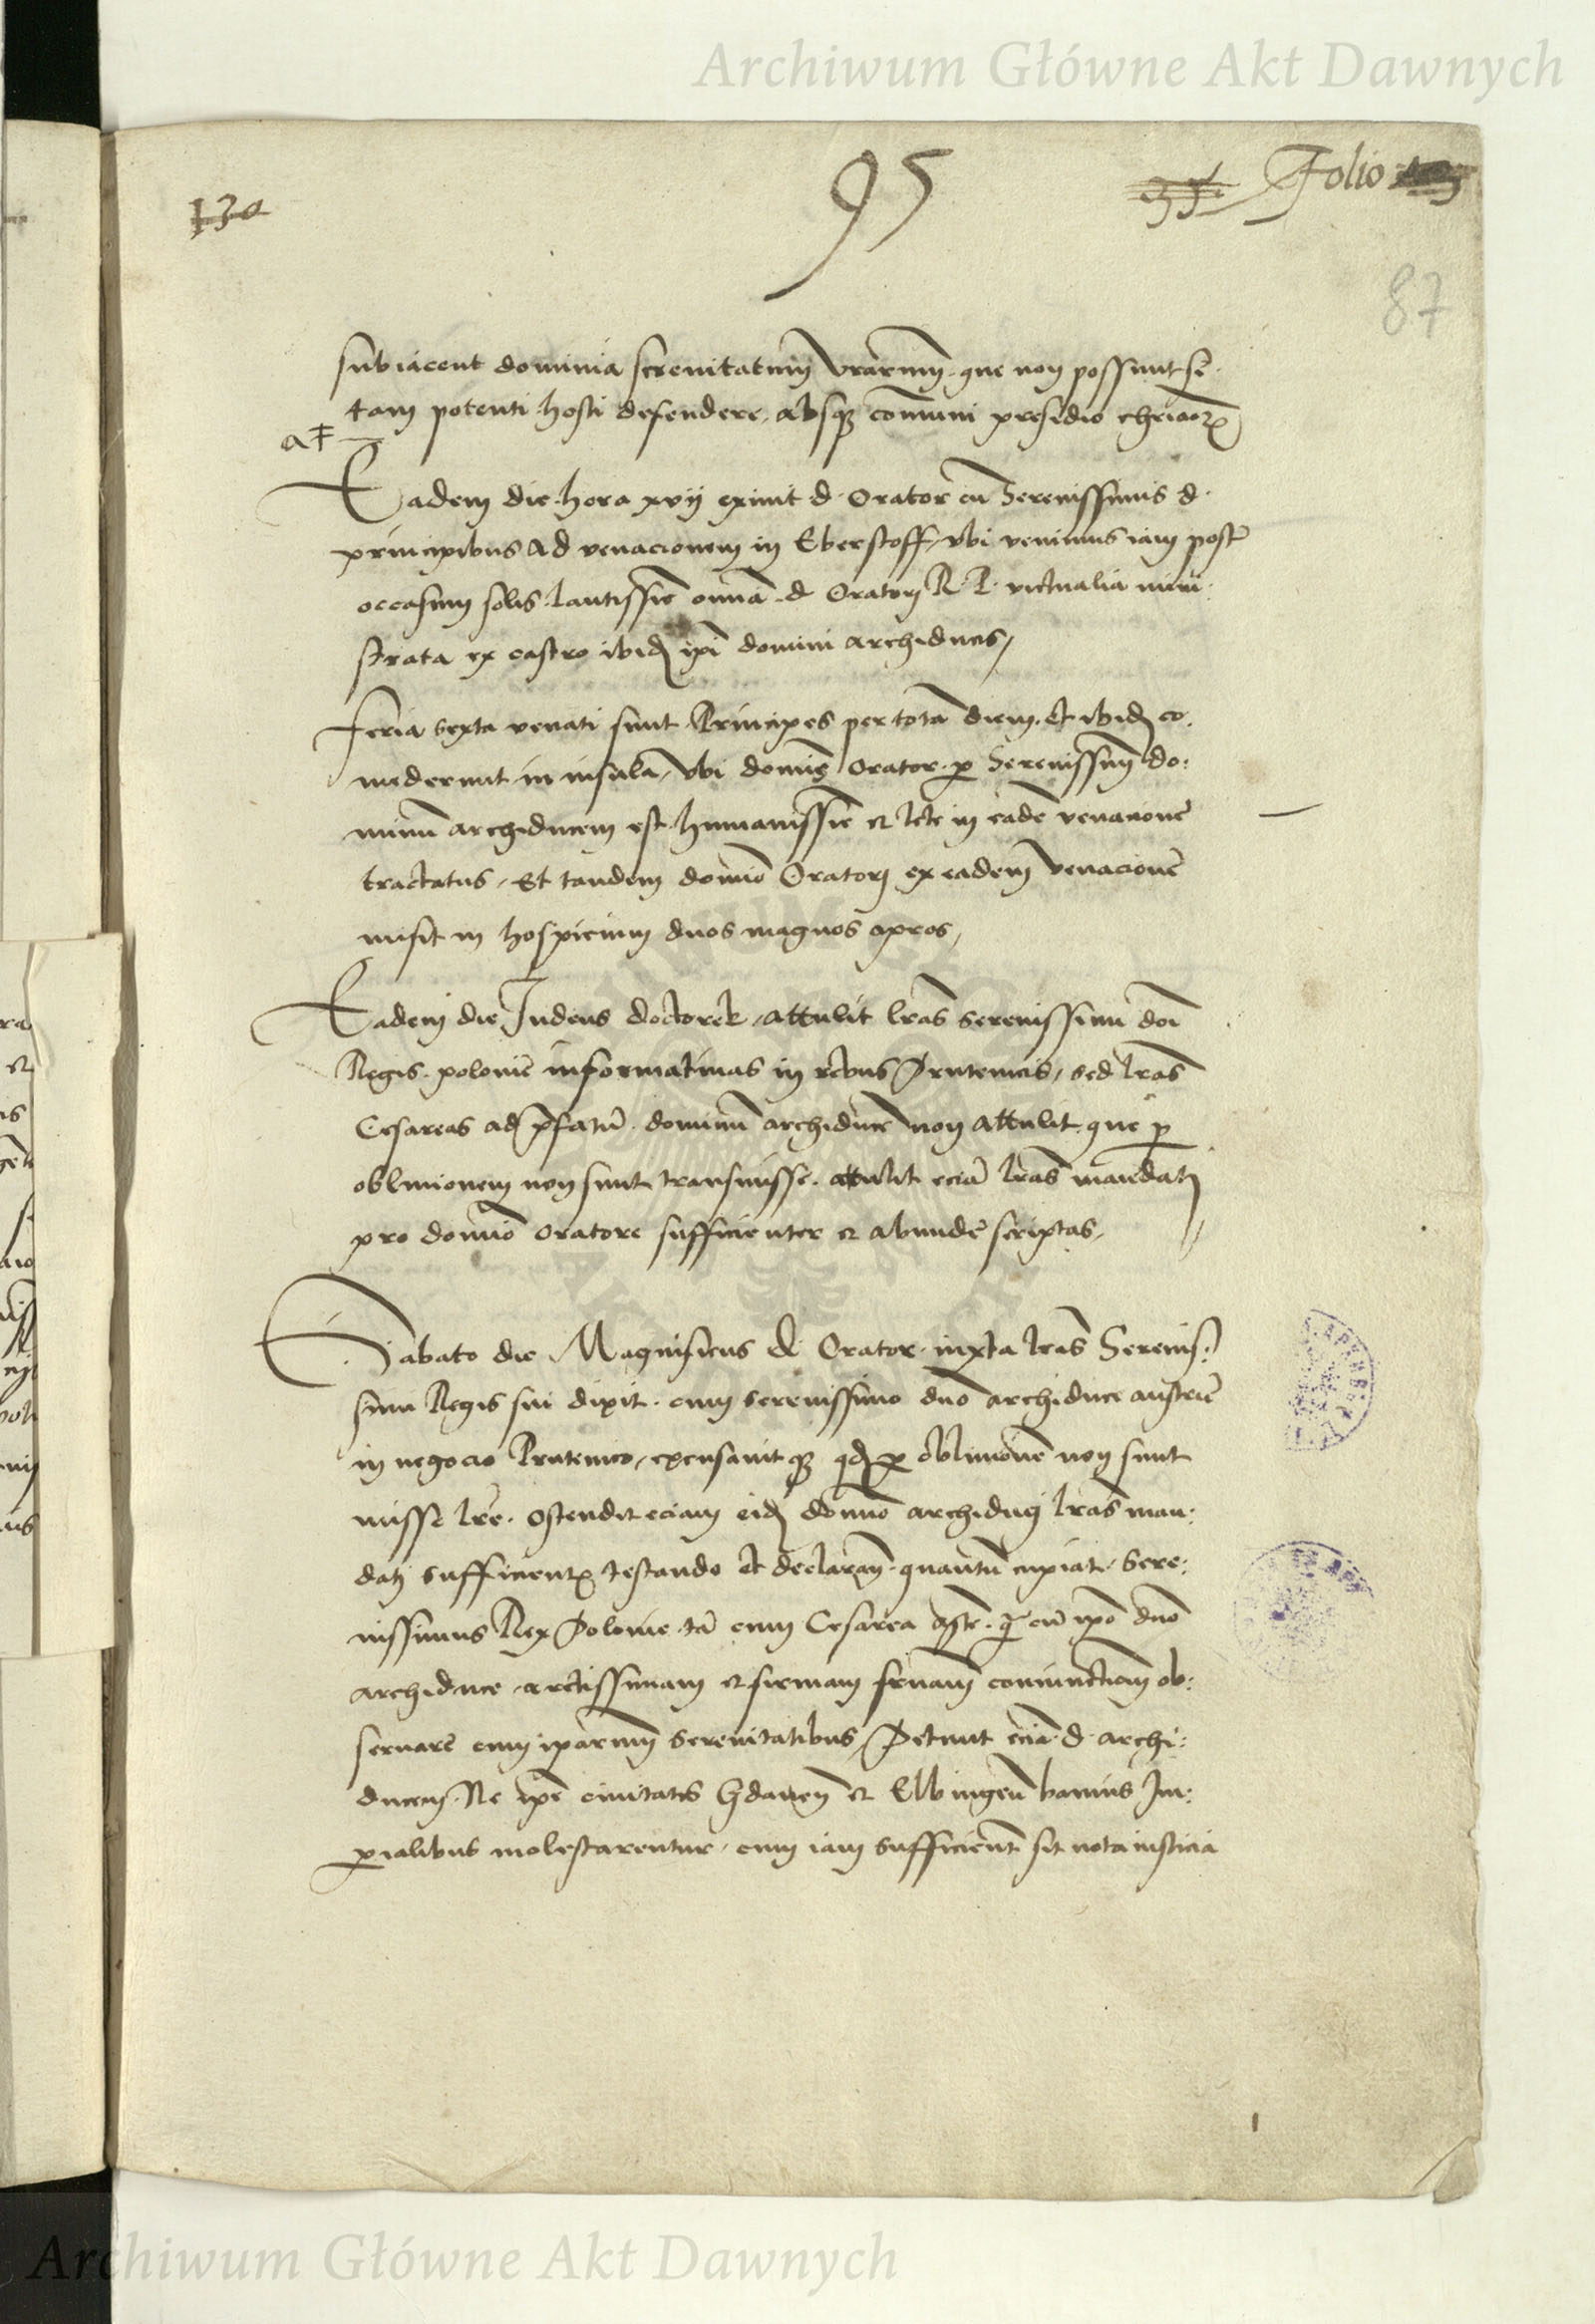 Archiwum Główne Akt Dawnych
130
95
Folio
87
subiacent dominia serenitatum vrarum que non possunt se
tam potenti hosti defendere absq comuni presidio
Eadem die hora xvij exiuit d. Orator cu Serenissimis d.
principibus ad venacionem in Eberstoff vbi venimus iam post
occasum solis lautissie omnia d Oratori R P victualia mini
strata ex castro ibid ipi domini archiducis
Feria sexta venati sunt Principes per tota diem et ibid co
mederunt in insula vbi domins Orator p Serenissim do:
minu archiducem est humanissie et lete in eade venacione
tractatus Et tandem domio Oratori ex eadem venacione
misit in hospicium duos magnos apros
Eadem die Judeus doctorek attulit lras serenissimi doi
Regis polonie informatiuas in rebus Prutenicis sed lras
Cesareas ad pfatu dominu archiduce non attulit que p
obliuionem non sunt transmisse attulit ecia lras mandati
pro domio oratore sufficienter et abunde scriptas
Sabato die Magnificus d Orator iuxta lras Serenis:
simi Regis sui dixit cum serenissimo duo archiduce austrie
in negocio Prutenico excusauit q qd p obliuione non sunt
misse lre ostendit eciam eid domio archiduci lras man:
dati sufficient testando et declaram quantu cupiat Sere:
nissimus Rex Polonie ta cum Cesarea q cu ipo duo
archiduce arctissimam et firmam coniunctiom ob:
seruare cum iparum serenitatibus Petiuit ecia d. archi:
ducem Ne ipe ciuitates Gdanen et Elbingen bannis Im:
perialibus molestarentur cum iam sufficient sit nota iusticia
Archiwum Główne Akt Dawnych